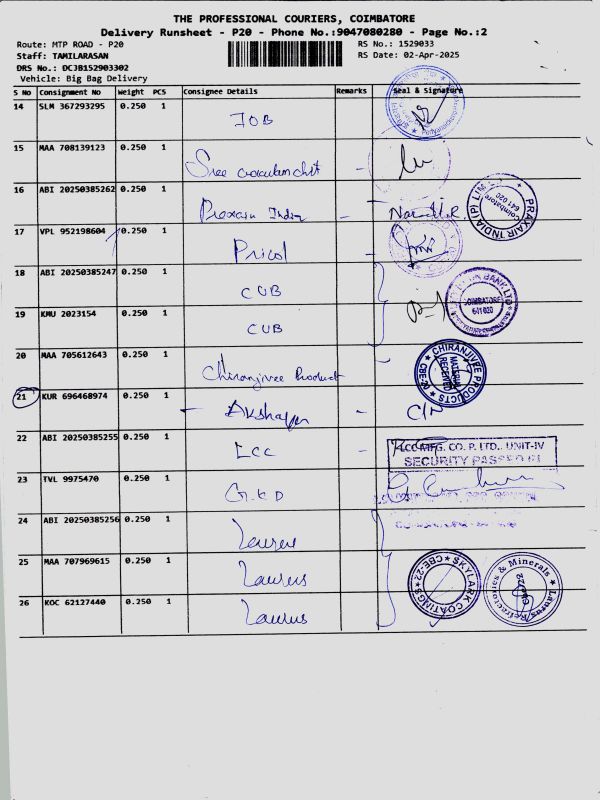 THE PROFESSIONAL COURIERS, COIMBATORE
Delivery Runsheet - P20 - Phone No.:9047080280 - Page No.:2
Route: MTP ROAD - P20
RS No.: 1529033
Staff: TAMILARASAN
RS Date: 02-Apr-2025
DRS No.: DCJB152903302
Vehicle: Big Bag Delivery
S No Consignment No Weight PCS Consignee Details Remarks Seal & Signature
14 SLM 367293295 0.250 1 JOB
15 MAA 708139123 0.250 1 Sree
16 ABI 20250385262 0.250 1 Praxair India -
PRAXAIR INDIA (P) LTD
Coimbatore
641 020
17 VPL 952198604 0.250 1 Pricol -
18 ABI 20250385247 0.250 1 CUB
19 KMU 2023154 0.250 1 CUB
BANK LTD
COIMBATORE
641 020
20 MAA 705612643 0.250 1 Chiranjivee Product -
CHIRANJIVEE PRODUCTS
CBE-20
MATERIAL RECEIVED
21 KUR 696468974 0.250 1 - Akshaya - C/N
22 ABI 20250385255 0.250 1 LCC -
LCC MFG. CO. P. LTD., UNIT-IV
SECURITY PASSED
23 TVL 9975470 0.250 1 G.K.D
24 ABI 20250385256 0.250 1 Laurus
25 MAA 707969615 0.250 1 Laurus
SKYLARK COATINGS
CBE-22
Refractories & Minerals
26 KOC 62127440 0.250 1 Laurus